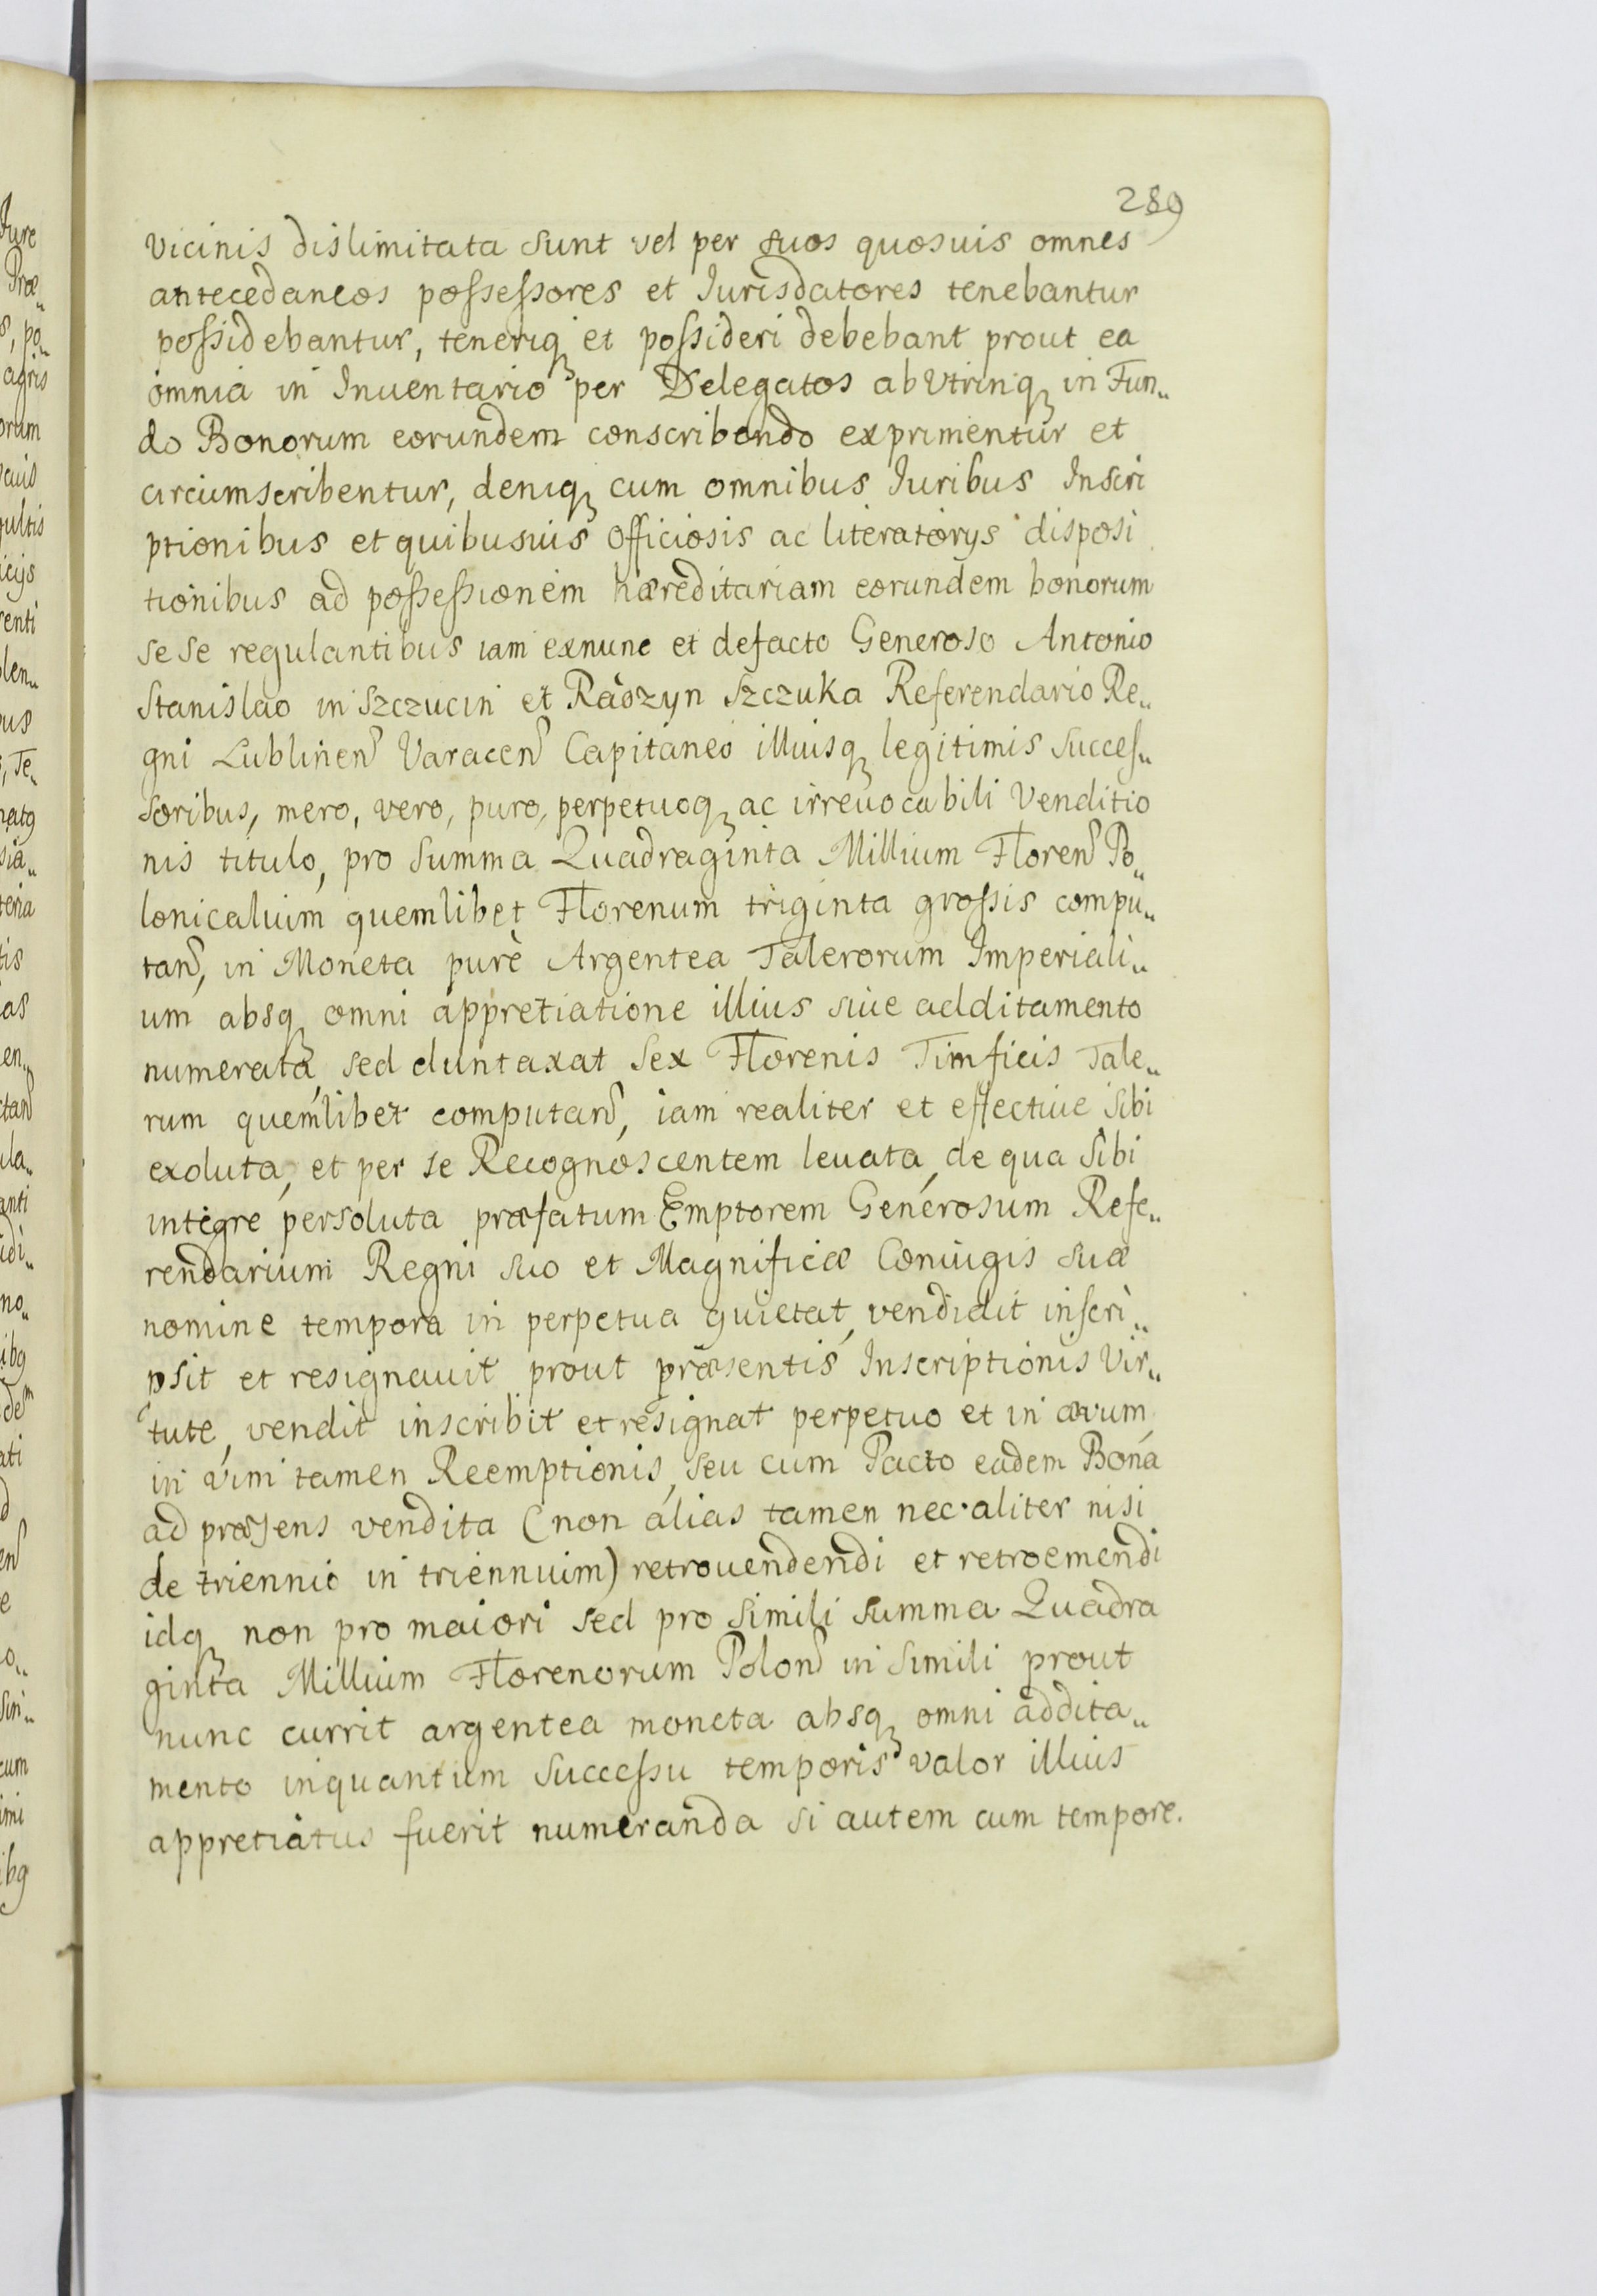 289
vicinis dislimitata sunt vel per suos quosuis omnes
antecedaneos possessores et Iurisdatores tenebantur
possidebantur, teneriq, et possideri debebant prout ea
omnia in Inuentario per Delegatos ab Vtrinq, in Fun„
do Bonorum eorundem conscribendo exprimentur et
circumscribentur, deniq, cum omnibus Iuribus Inscri
ptionibus et quibusuis Officiosis ac literatorys disposi
tionibus ad possessionem hæreditariam eorundem bonorum
se se regulantibus iam exnunc et defacto Generoso Antonio
Stanislao in Szczucin et Raszyn Szczuka Referendario Re„
gni Lublinen Varacen Capitaneo illiusq, legitimis succes„
soribus, mero, vero, puro, perpetuoq, ac irreuocabili Venditio
nis titulo, pro Summa Quadraginta Millium Floren Po„
lonicalium quemlibet Florenum triginta grossis compu„
tan, in Moneta purè Argentea Talerorum Imperiali„
um absq, omni appretiatione illius siue additamento
numerata, sed duntaxat Sex Florenis Timficis Tale„
rum quemlibet computan, iam realiter et effectiue sibi
exoluta, et per se Recognoscentem leuata, de qua sibi
integre persoluta præfatum Emptorem Generosum Refe„
rendarium Regni suo et Magnificæ Coniugis suæ
nomine tempora in perpetua quietat, vendidit inscri„
psit et resignauit prout præsentis Inscriptionis Vir„
tute, vendit inscribit et resignat perpetuo et in ævum,
in vim tamen Reemptionis, seu cum Pacto eadem Bona
ad præsens vendita (non alias tamen nec aliter nisi
de triennio in triennium) retrouendendi et retroemendi
idq, non pro maiori sed pro simili summa Quadra
ginta Millium Florenorum Polon in simili prout
nunc currit argentea moneta absq, omni addita„
mento inquantum successu temporis valor illius
appretiatus fuerit numeranda si autem cum tempore.